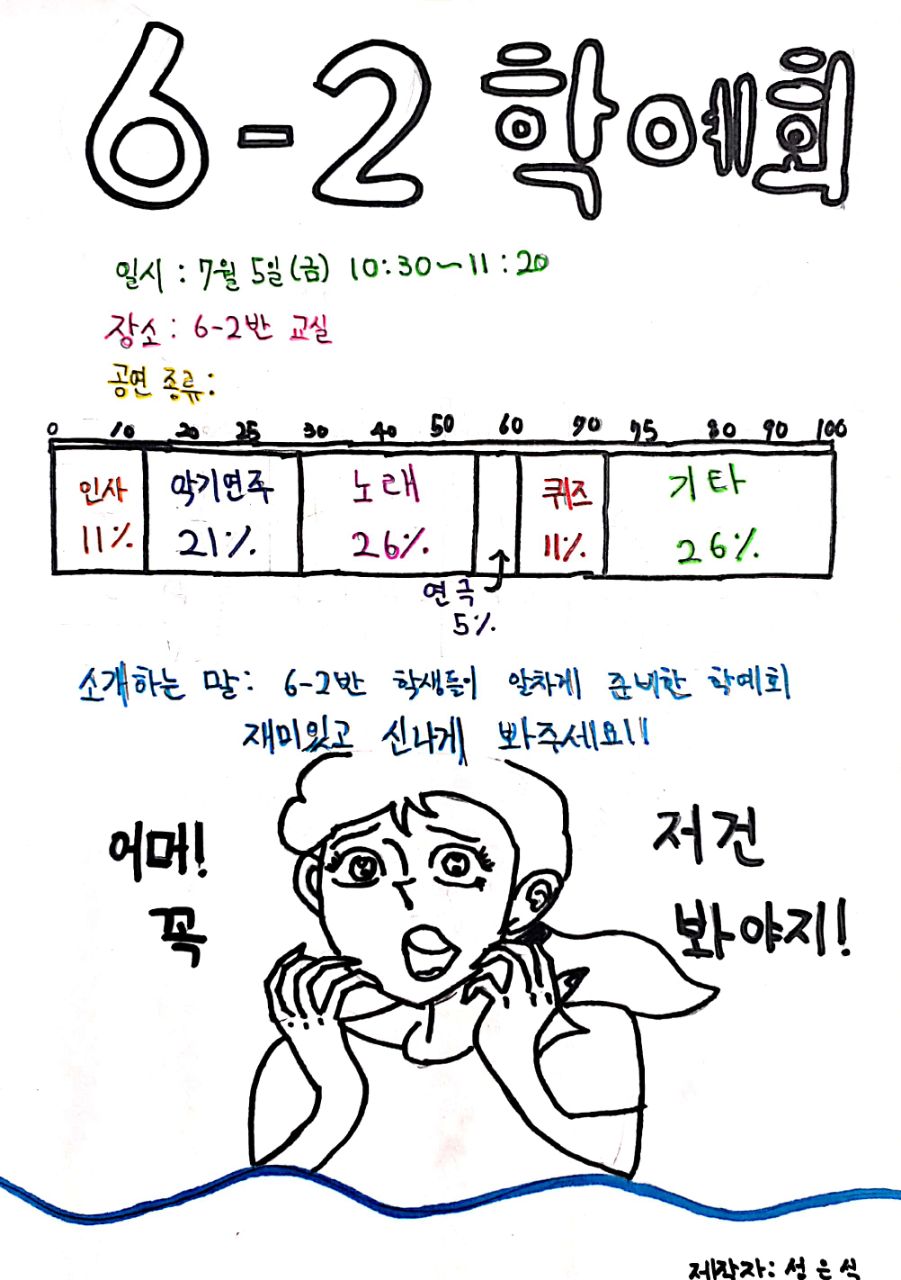 6-2 학예회
일시 : 7월 5일(금) 10:30~11:20
장소 : 6-2반 교실
공연 종류:
0 10 20 25 30 40 50 60 70 75 80 90 100
인사 악기연주 노래 퀴즈 기타
11% 21% 26% 11% 26%
연극
5%
소개하는 말: 6-2반 학생들이 알차게 준비한 학예회
재미있고 신나게 봐주세요!!
어머! 저건
꼭 봐야지!
제작자: 성은석